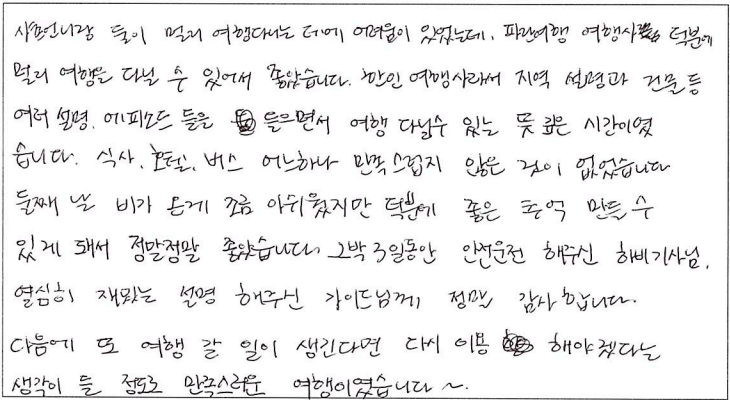 사촌언니랑 둘이 멀리 여행다니는 데에 어려움이 있었는데, 파란여행 여행사 덕분에
멀리 여행을 다닐 수 있어서 좋았습니다. 한인 여행사라서 지역 설명과 건물 등
여러 설명, 에피소드 들을 들으면서 여행 다닐수 있는 뜻 깊은 시간이였
습니다. 식사, 호텔, 버스 어느하나 만족스럽지 않은 것이 없었습니다
둘째 날 비가 온게 조금 아쉬웠지만 덕분에 좋은 추억 만들 수
있게 돼서 정말정말 좋았습니다. 2박 3일동안 안전운전 해주신 하비기사님,
열심히 재밌는 설명 해주신 가이드님께 정말 감사합니다.
다음에 또 여행 갈 일이 생긴다면 다시 이용 해야겠다는
생각이 들 정도로 만족스러운 여행이였습니다 ~.